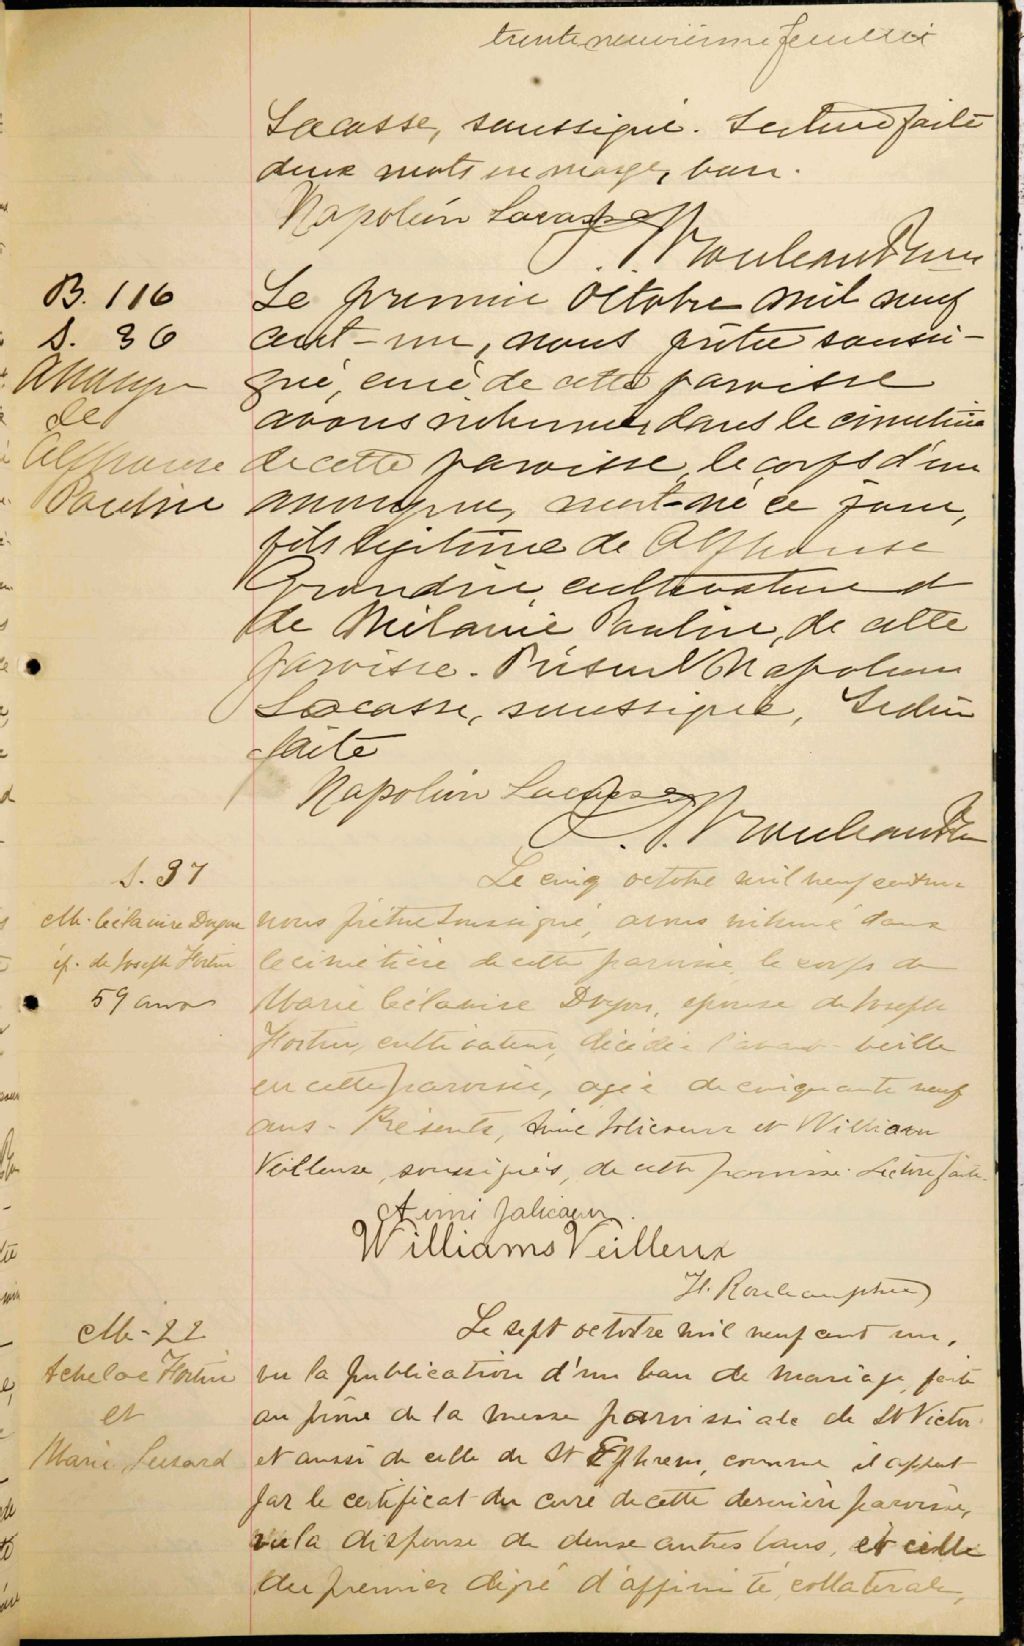 trente neuvième feuillet
Lacasse, soussigné. Lecture faite
deux mots en marge, bon.
Napoléon Lacasse
Rouleau Ptre
B. 116
S. 36
Anonyme
de
Alphonse
Pauline
Le premier Octobre mil neuf
cent-un, nous prêtre soussi-
gné, curé de cette paroisse
avons inhumé, dans le cimetière
de cette paroisse, le corps d'un
anonyme, mort-né ce jour,
fils légitime de Alphonse
Grondin, cultivateur et
de Mélanie Pauline, de cette
paroisse. Présent Napoléon
Lacasse, soussigné, Lecture
faite
Napoléon Lacasse
Rouleau Ptre
S. 37
M. Célanire Doyon
ép. de Joseph Fortin
59 ans
Le cinq octobre mil neuf cent un
nous prêtre soussigné, avons inhumé dans
le cimetière de cette paroisse, le corps de
Marie Célanire Doyon, épouse de Joseph
Fortin, cultivateur, décédée l'avant-veille
en cette paroisse, agée de cinquante neuf
ans. Présents, Aimé Jolicoeur et William
Veilleux, soussignés, de cette paroisse. Lecture faite.
Aimé Jolicoeur.
Williams Veilleux
H. Rouleau ptre
M-22
Fortin
et
Marie
Le sept octobre mil neuf cent un,
vu la publication d'un ban de mariage, faite
au prône de la messe paroissiale de St Victor
et aussi de celle de St Ephrem, comme il appert
par le certificat du curé de cette dernière paroisse,
vu la dispense de deux autres bans, et celle
du premier degré d'affinité collatérale,